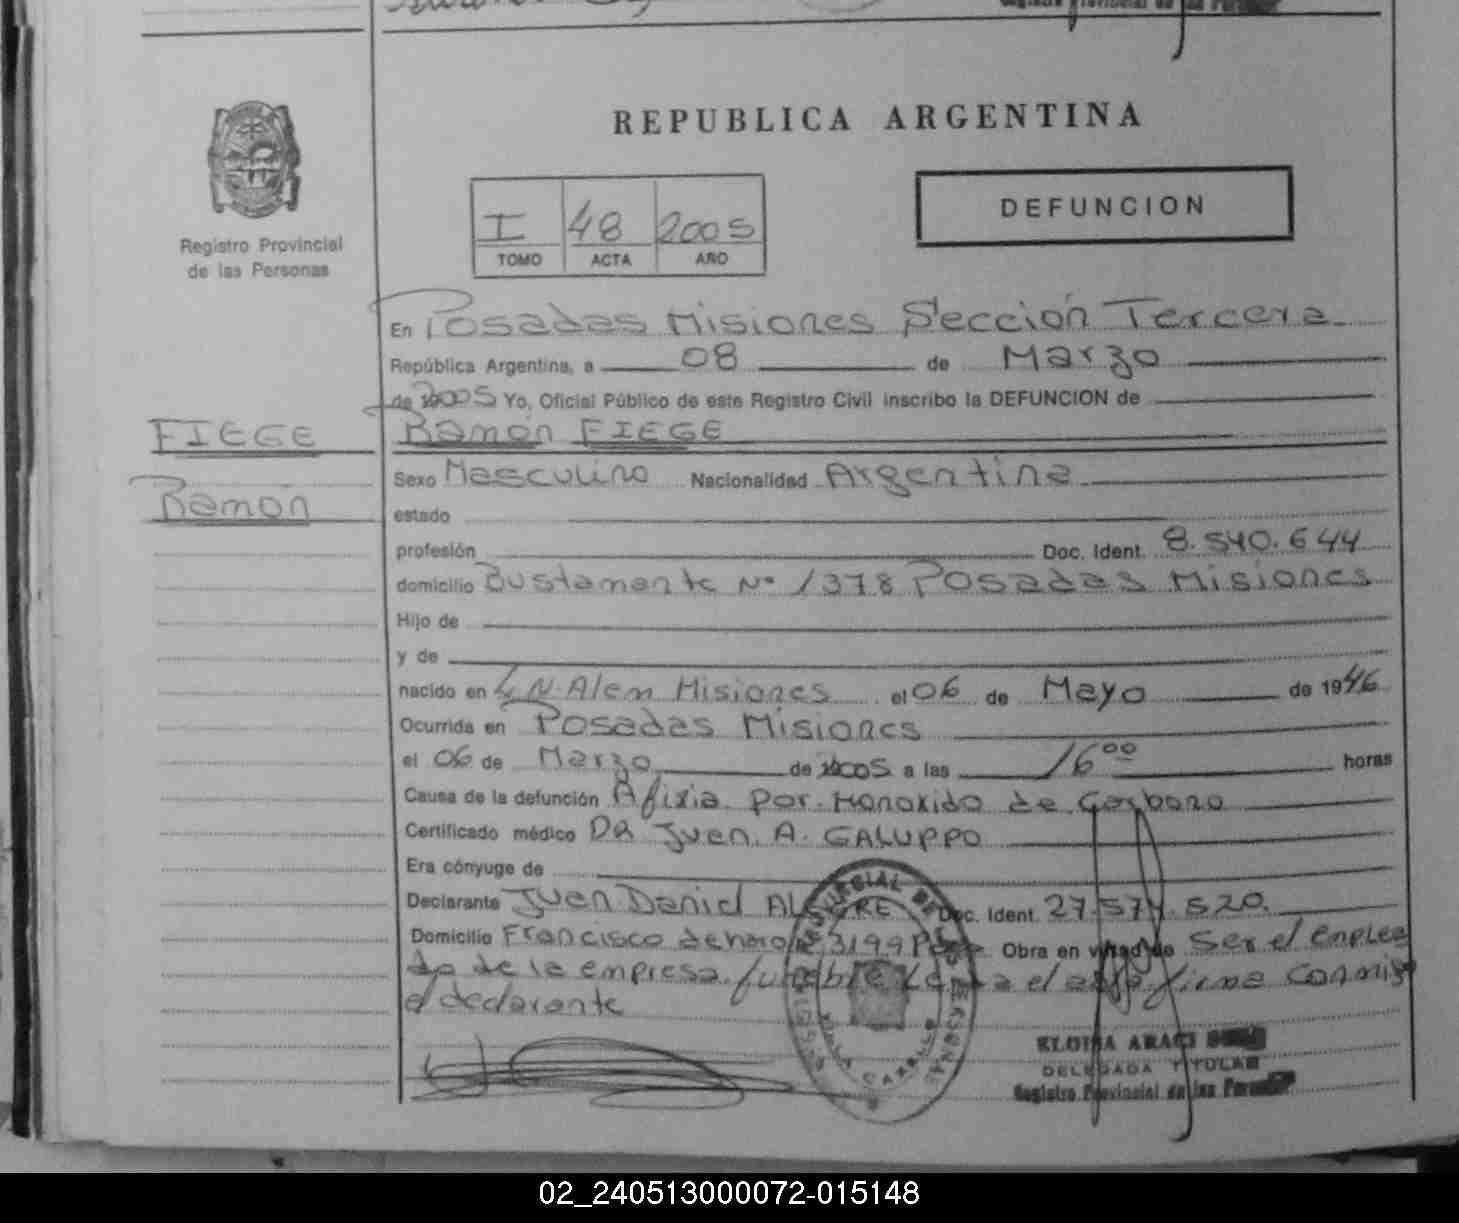 REPUBLICA ARGENTINA
DEFUNCION
I 48 2005
TOMO ACTA AÑO
Registro Provincial
de las Personas
En Posadas Misiones Sección Tercera
República Argentina, a 08 de Marzo
de 2005 Yo, Oficial Público de este Registro Civil inscribo la DEFUNCION de
FIEGE
Ramón FIEGE
Ramón
Sexo Masculino Nacionalidad Argentina
estado
profesión Doc. Ident. 8.540.644
domicilio Bustamante Nº 1378 Posadas Misiones
Hijo de
y de
nacido en L.N.Alem Misiones el 06 de Mayo de 1946
Ocurrida en Posadas Misiones
el 06 de Marzo de 2005 a las 16 00 horas
Causa de la defunción Afixia por Monoxido de Carbono
Certificado médico DR Juan A. GALUPPO
Era cónyuge de
Declarante Juan Daniel Doc. Ident. 27.574.520
Domicilio Francisco de haro Nº 3199 Obra en Ser el emplea
do de la empresa el firma conmigo
el declarante
VILLA CABELLO
ELOISA ARACI
DELEGADA TITULAR
Registro Provincial de las
02_240513000072-015148